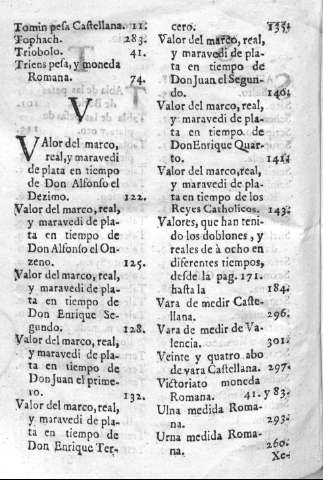 Tomin pesa Castellana. 11.
Tophach. 283.
Triobolo. 41.
Triens pesa, y moneda
Romana. 74.
V
VAlor del marco,
real, y maravedi
de plata en tiempo
de Don Alfonso el
Dezimo. 122.
Valor del marco, real,
y maravedi de pla-
ta en tiempo de
Don Alfonso el On-
zeno. 125.
Valor del marco, real,
y maravedi de pla-
ta en tiempo de
Don Enrique Se-
gundo. 128.
Valor del marco, real,
y maravedi de pla-
ta en tiempo de
Don Juan el prime-
ro. 132.
Valor del marco, real,
y maravedi de pla-
ta en tiempo de
Don Enrique Ter-
cero. 135.
Valor del marco, real,
y maravedi de pla-
ta en tiempo de
Don Juan el Segun-
do. 140.
Valor del marco, real,
y maravedi de pla-
ta en tiempo de
Don Enrique Quar-
to. 141.
Valor del marco, real,
y maravedi de pla-
ta en tiempo de los
Reyes Catholicos. 143.
Valores, que han teni
do los doblones, y
reales de à ocho en
diferentes tiempos,
desde la pag. 171.
hasta la 184.
Vara de medir Caste-
llana. 296.
Vara de medir de Va-
lencia. 301.
Veinte y quatro abo
de vara Castellana. 297.
Victoriato moneda
Romana. 41. y 83.
Ulna medida Roma-
na. 293.
Urna medida Roma-
na. 260.
Xe-